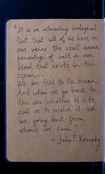 "It is an interesting biological
fact that all of us have in
our veins the exact same
percentage of salt in our
blood that exists in the
ocean...
We are tied to the ocean.
And when we go back to
the sea whether it is to
sail or to watch it - we
are going back from
whence we came."
- John F. Kennedy